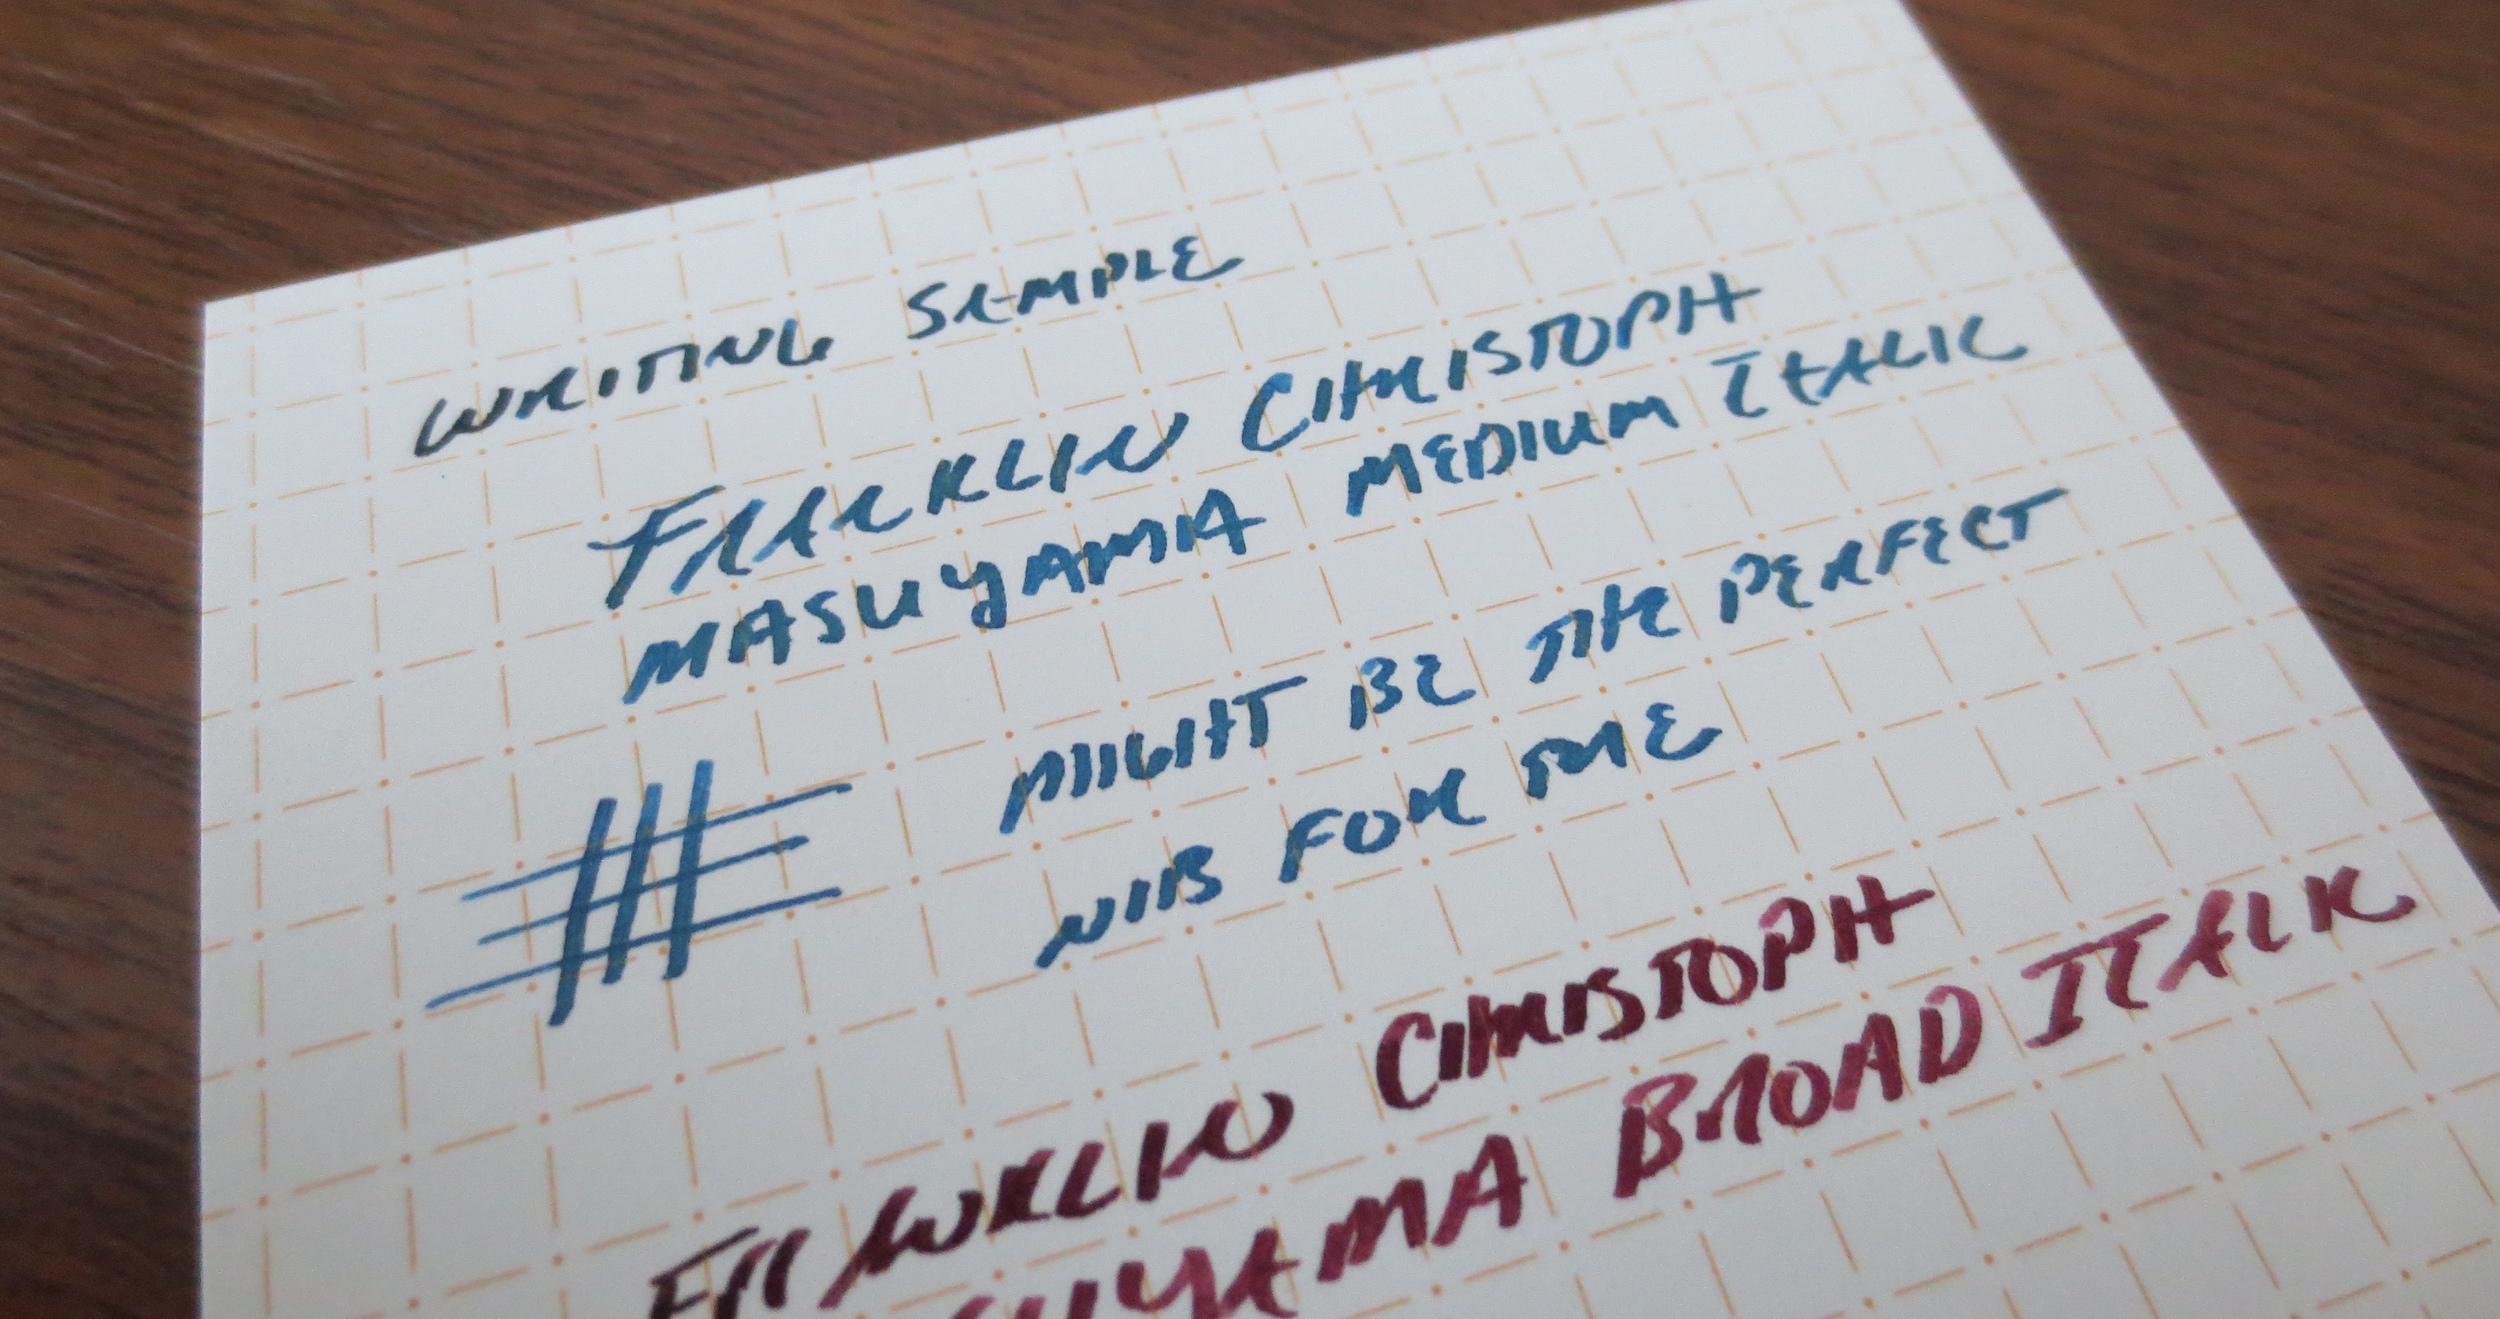 WRITING SAMPLE
FRANKLIN CHRISTOPH
MASUYAMA MEDIUM ITALIC
MIGHT BE THE PERFECT
NIB FOR ME
FRANKLIN CHRISTOPH
MASUYAMA BROAD ITALIC